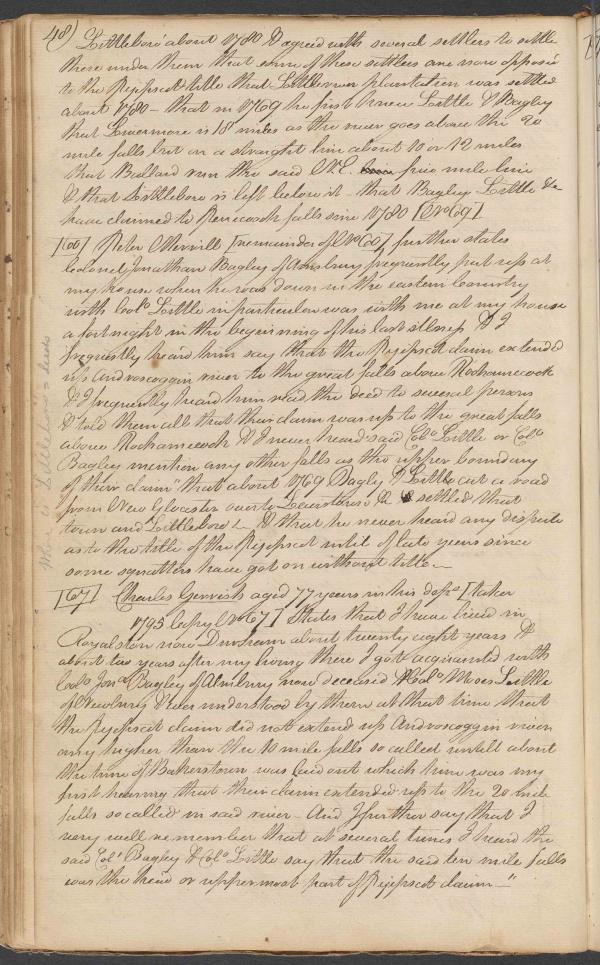 48)
Littleboro' about 1780 & agreed with several settlers to settle
there under them that some of these settlers are now opposed
to the Pejepscot title that Littleboro plantation was settled
about 1780 – that in 1769 he first knew Little & Bagley
that Livermore is 18 miles as the river goes above the 20
mile falls but on a straight line about 10 or 12 miles
that Ballard run the said N.E. five mile line
& that Littleboro is left below it – that Bagley Little &c
have claimed to Rencoock falls since 1780 [No 69]
[66] Peter Merrill [remainder of No 60] further states
Colonel Jonathan Bagley of Amsbury frequently put up at
my house when he was down in the eastern Country
with Colo Little in particular was with me at my house
a fortnight in the beginning of his last illness & I
frequently heard him say that the Pejepscot claim extended
up Androscoggin river to the great falls above Rockamecook
& I frequently heard him read the deed to several persons
& told them all that their claim was up to the great falls
above Rockamecook & I never heard said Colo Little or Colo
Bagley mention any other falls as the upper boundary
of their claim" that about 1769 Bagley & Little cut a road
from New Glocester over to Lewistown & settled that
town and Littleboro' – & that he never heard any dispute
as to the title of the Pejepscot until of late years since
some squatters have got on without title –
[67] Charles Gerrish aged 77 years in his depo [taken
1795 Copy No 67] States that I have lived in
Royalston now Durham about twenty eight years &
about two years after my living there I got acquainted with
Colo Jona Bagley of Almsbury now deceased & Colo Moses Little
of Newbury & ever understood by them at that time that
the Pejepscot claim did not extend up Androscoggin river
any higher than the 10 mile falls so called untill about
the time of Bakerstown was laid out which time was my
first hearing that their claim extended up to the 20 mile
falls so called in said river – And I further say that I
very well remember that at several times I heard the
said Colo Bagley & Colo Little say that the said ten mile falls
was the head or uppermost part of Pejepscot claim –"